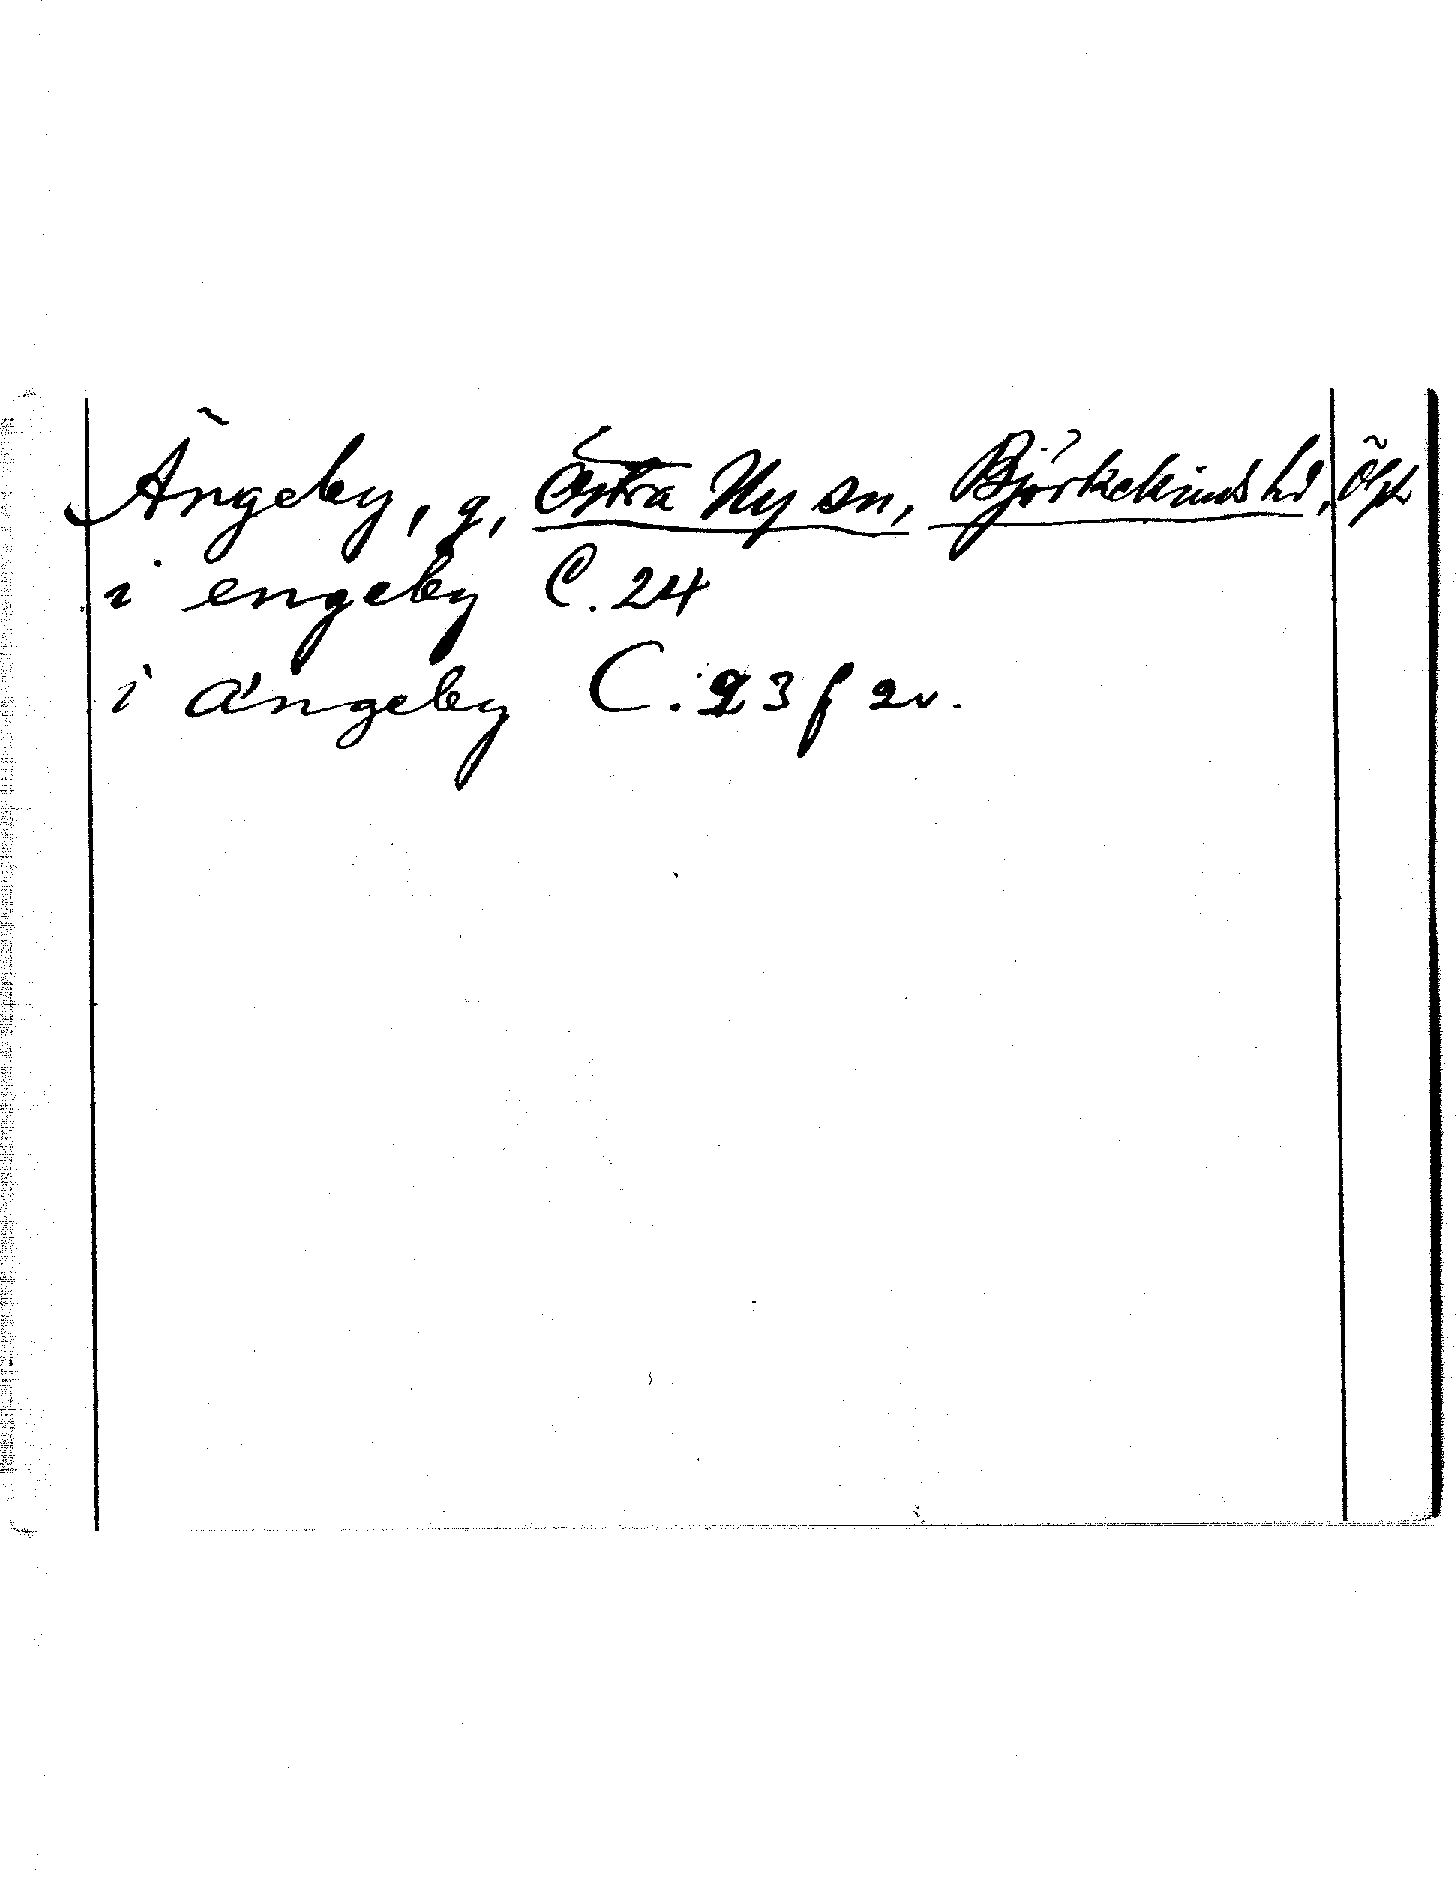 Ängeby, g, Östra Ny sn, Björkekinds hd, Ögl
i engeby C. 24
i ängeby C. 23 f 2v.